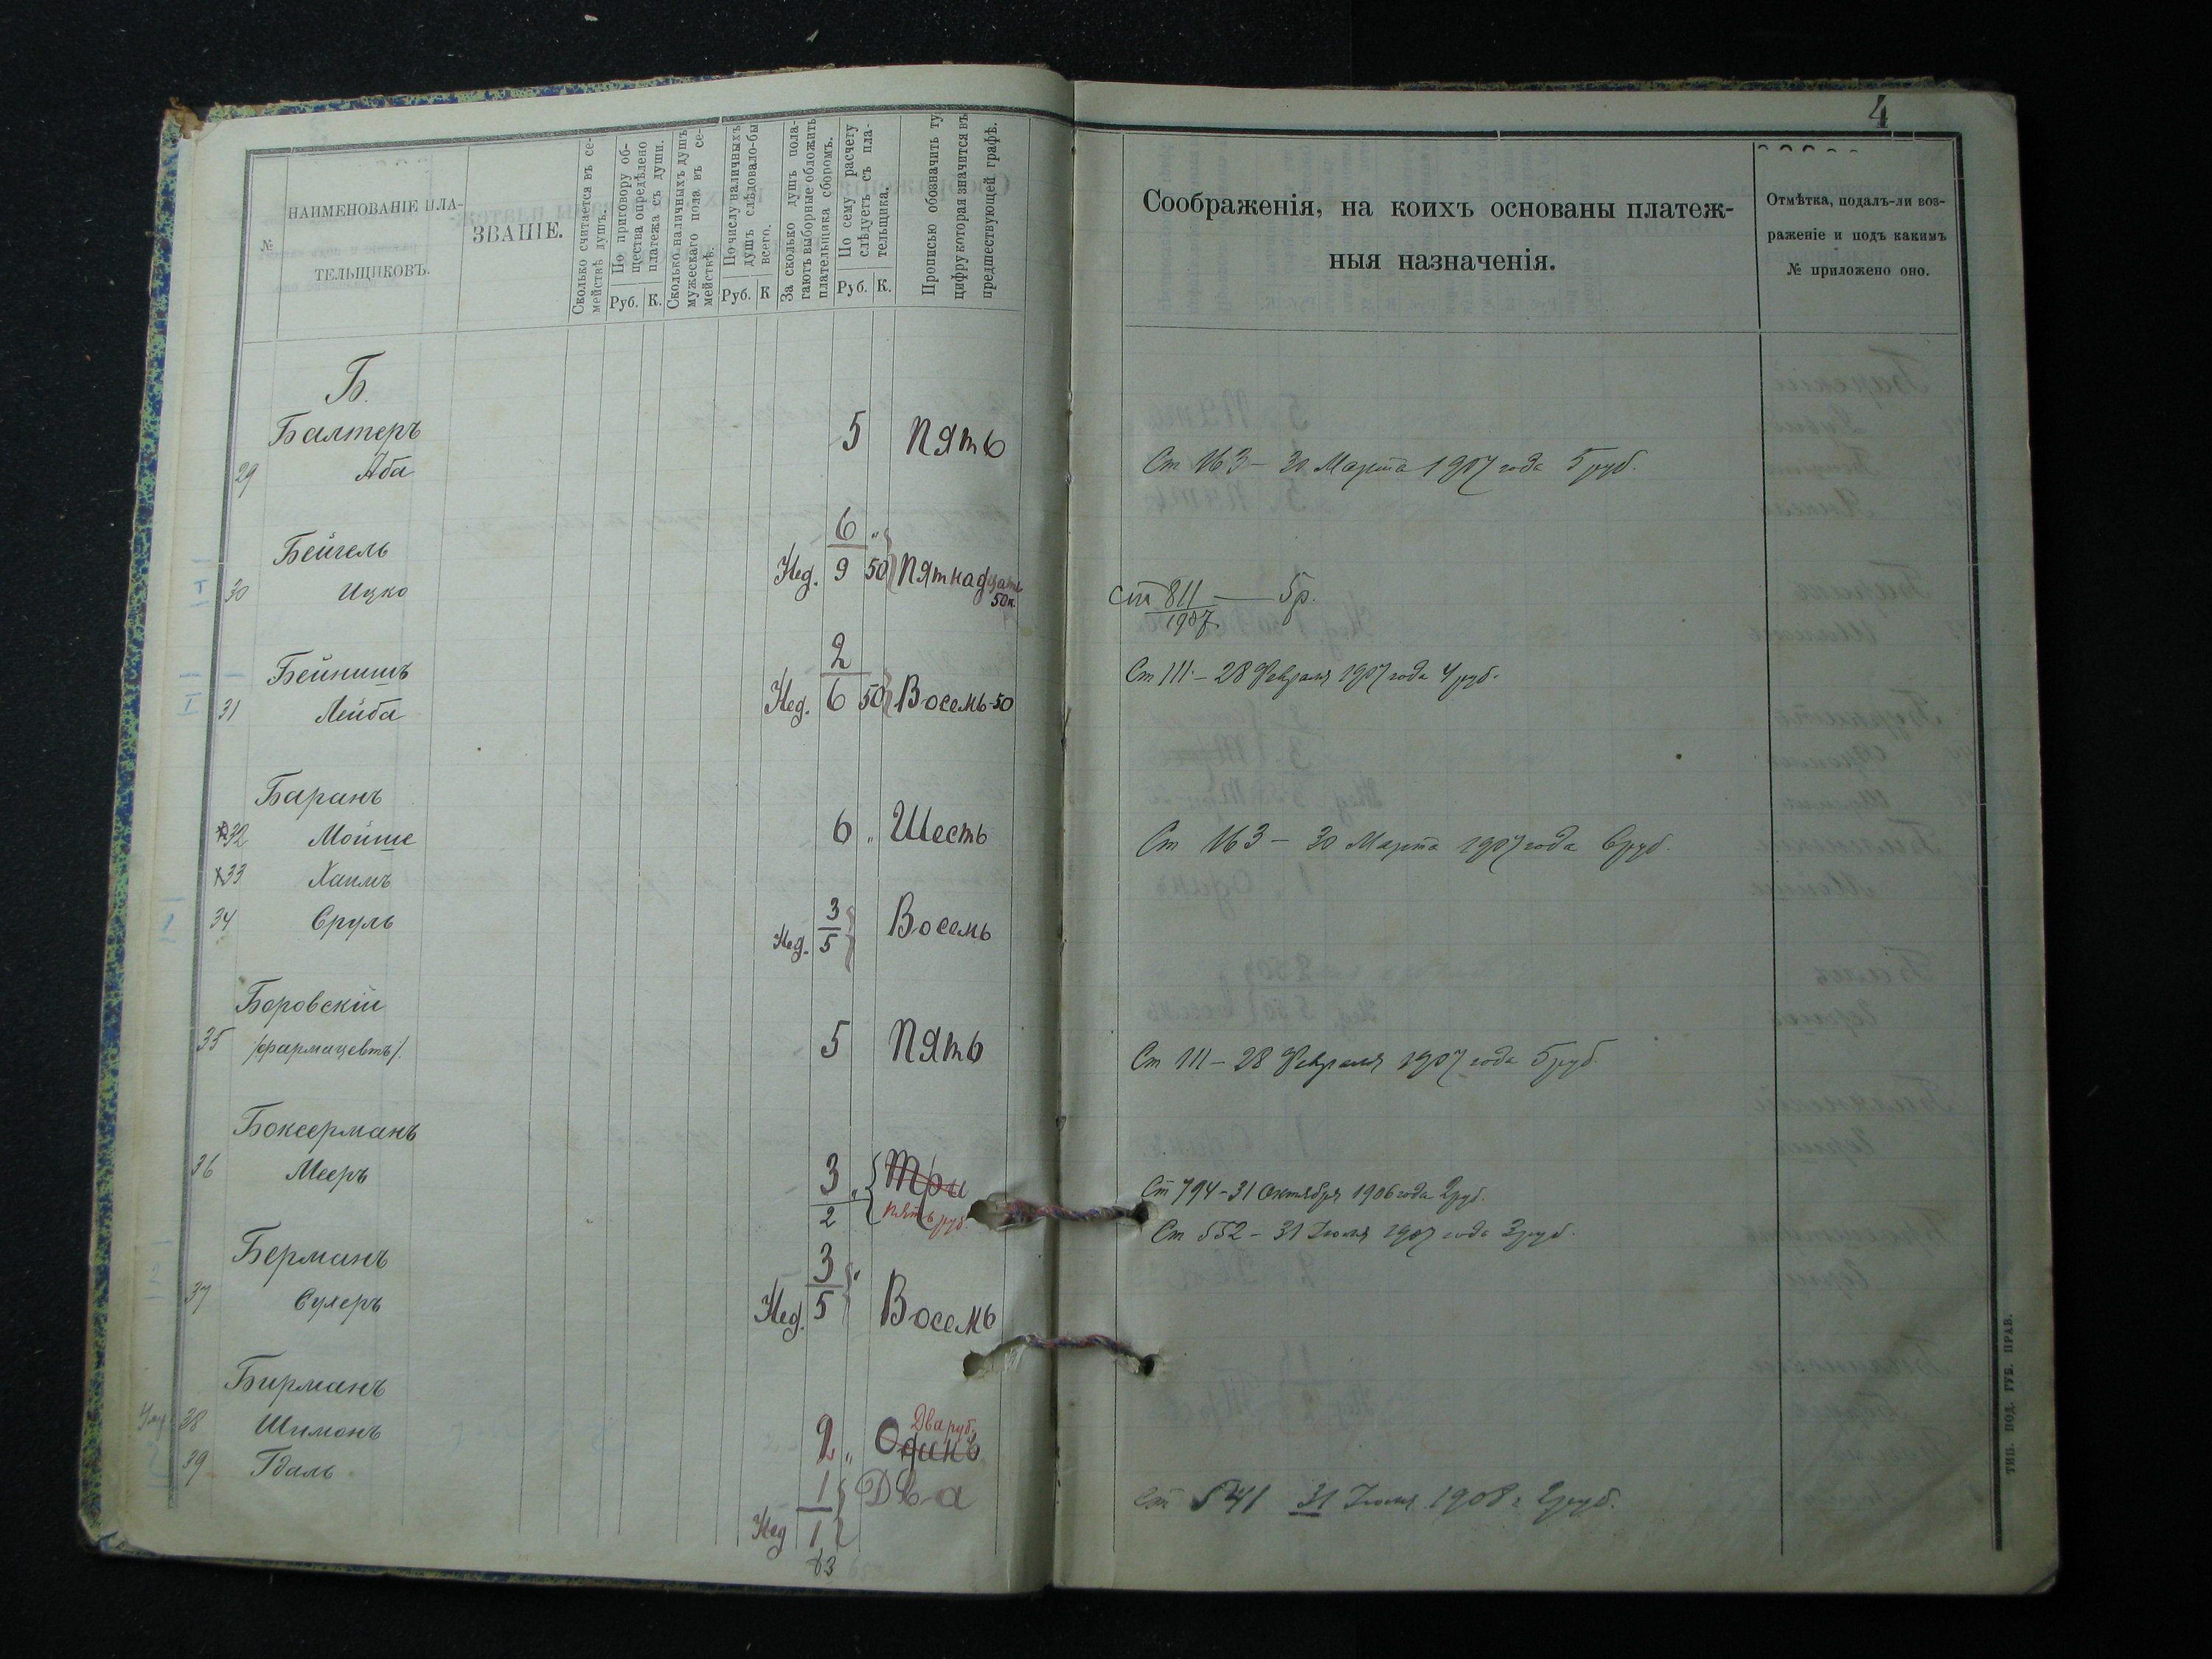 4
№
НАИМЕНОВАНІЕ ПЛА-
ТЕЛЬЩИКОВЪ.
ЗВАНІЕ.
Сколько считается въ се-
мействѣ душъ.
По приговору об-
щества опредѣлено
платежа съ души.
Руб. К.
Сколько наличныхъ душъ
мужескаго пола въ се-
мействѣ.
По числу наличныхъ
душъ слѣдовало-бы
всего.
Руб. К
За сколько душъ пола-
гаютъ выборные обложить
плательщика сборомъ.
По сему расчету
слѣдуетъ съ пла-
тельщика.
Руб. К.
Прописью обозначить ту
цифру которая значится въ
предшествующей графѣ.
Соображенія, на коихъ основаны платеж-
ныя назначенія.
Отмѣтка, подалъ-ли воз-
раженіе и подъ какимъ
№ приложено оно.
Б.
Балтеръ 5 Пять
29 Аба Ст 163 – 30 Марта 1907 года 5 руб.
Бейгель 6 „
30 Ицко Нед. 9 50 Пятнадцать 50 к. ст 811/1907 — 5 р.
Бейнишъ 2
31 Лейба Нед. 6 50 Восемь-50 Ст 111 – 28 Февраля 1907 года 4 руб.
Баранъ
32 Мойше 6 „ Шесть Ст 163 – 30 Марта 1907 года 6 руб.
33 Хаимъ
34 Сруль 3 Восемь
Нед. 5
Боровскій
35 /фармацевтъ/. 5 Пять Ст 111 – 28 Февраля 1907 года 5 руб.
Боксерманъ
36 Мееръ 3 „ Три Ст 794 – 31 Октября 1906 года 2 руб.
2 пять руб. Ст 552 – 31 Іюля 1907 года 3 руб.
Берманъ 3 „
37 Сухеръ Нед. 5 Восемь
Бирманъ
Два руб.
38 Шимонъ 2 „ Одинъ
39 Гдаль 1 Два ст 541 31 Іюля 1908 г 2 руб.
Нед 1
63
ТИП. ПОД. ГУБ. ПРАВ.